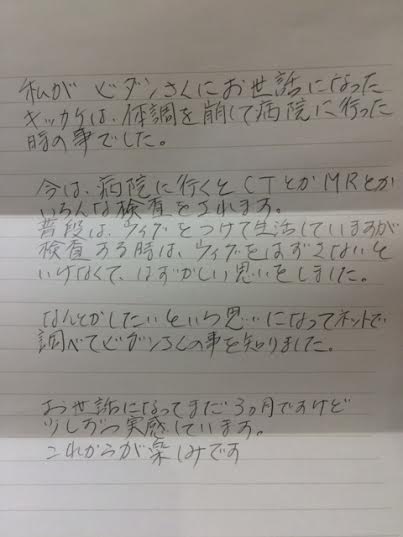 私がビダンさんにお世話になった
キッカケは、体調を崩して病院に行った
時の事でした。
今は、病院に行くとCTとかMRとか
いろんな検査をされます。
普段は、ウィズをつけて生活していますが
検査する時は、ウィズをはずさないと
いけなくて、はずかしい思いをしました。
なんとかしたいという思いになってネットで
調べてビダンさんの事を知りました。
お世話になってまだ3ヵ月ですけど
少しずつ実感しています。
これからが楽しみです